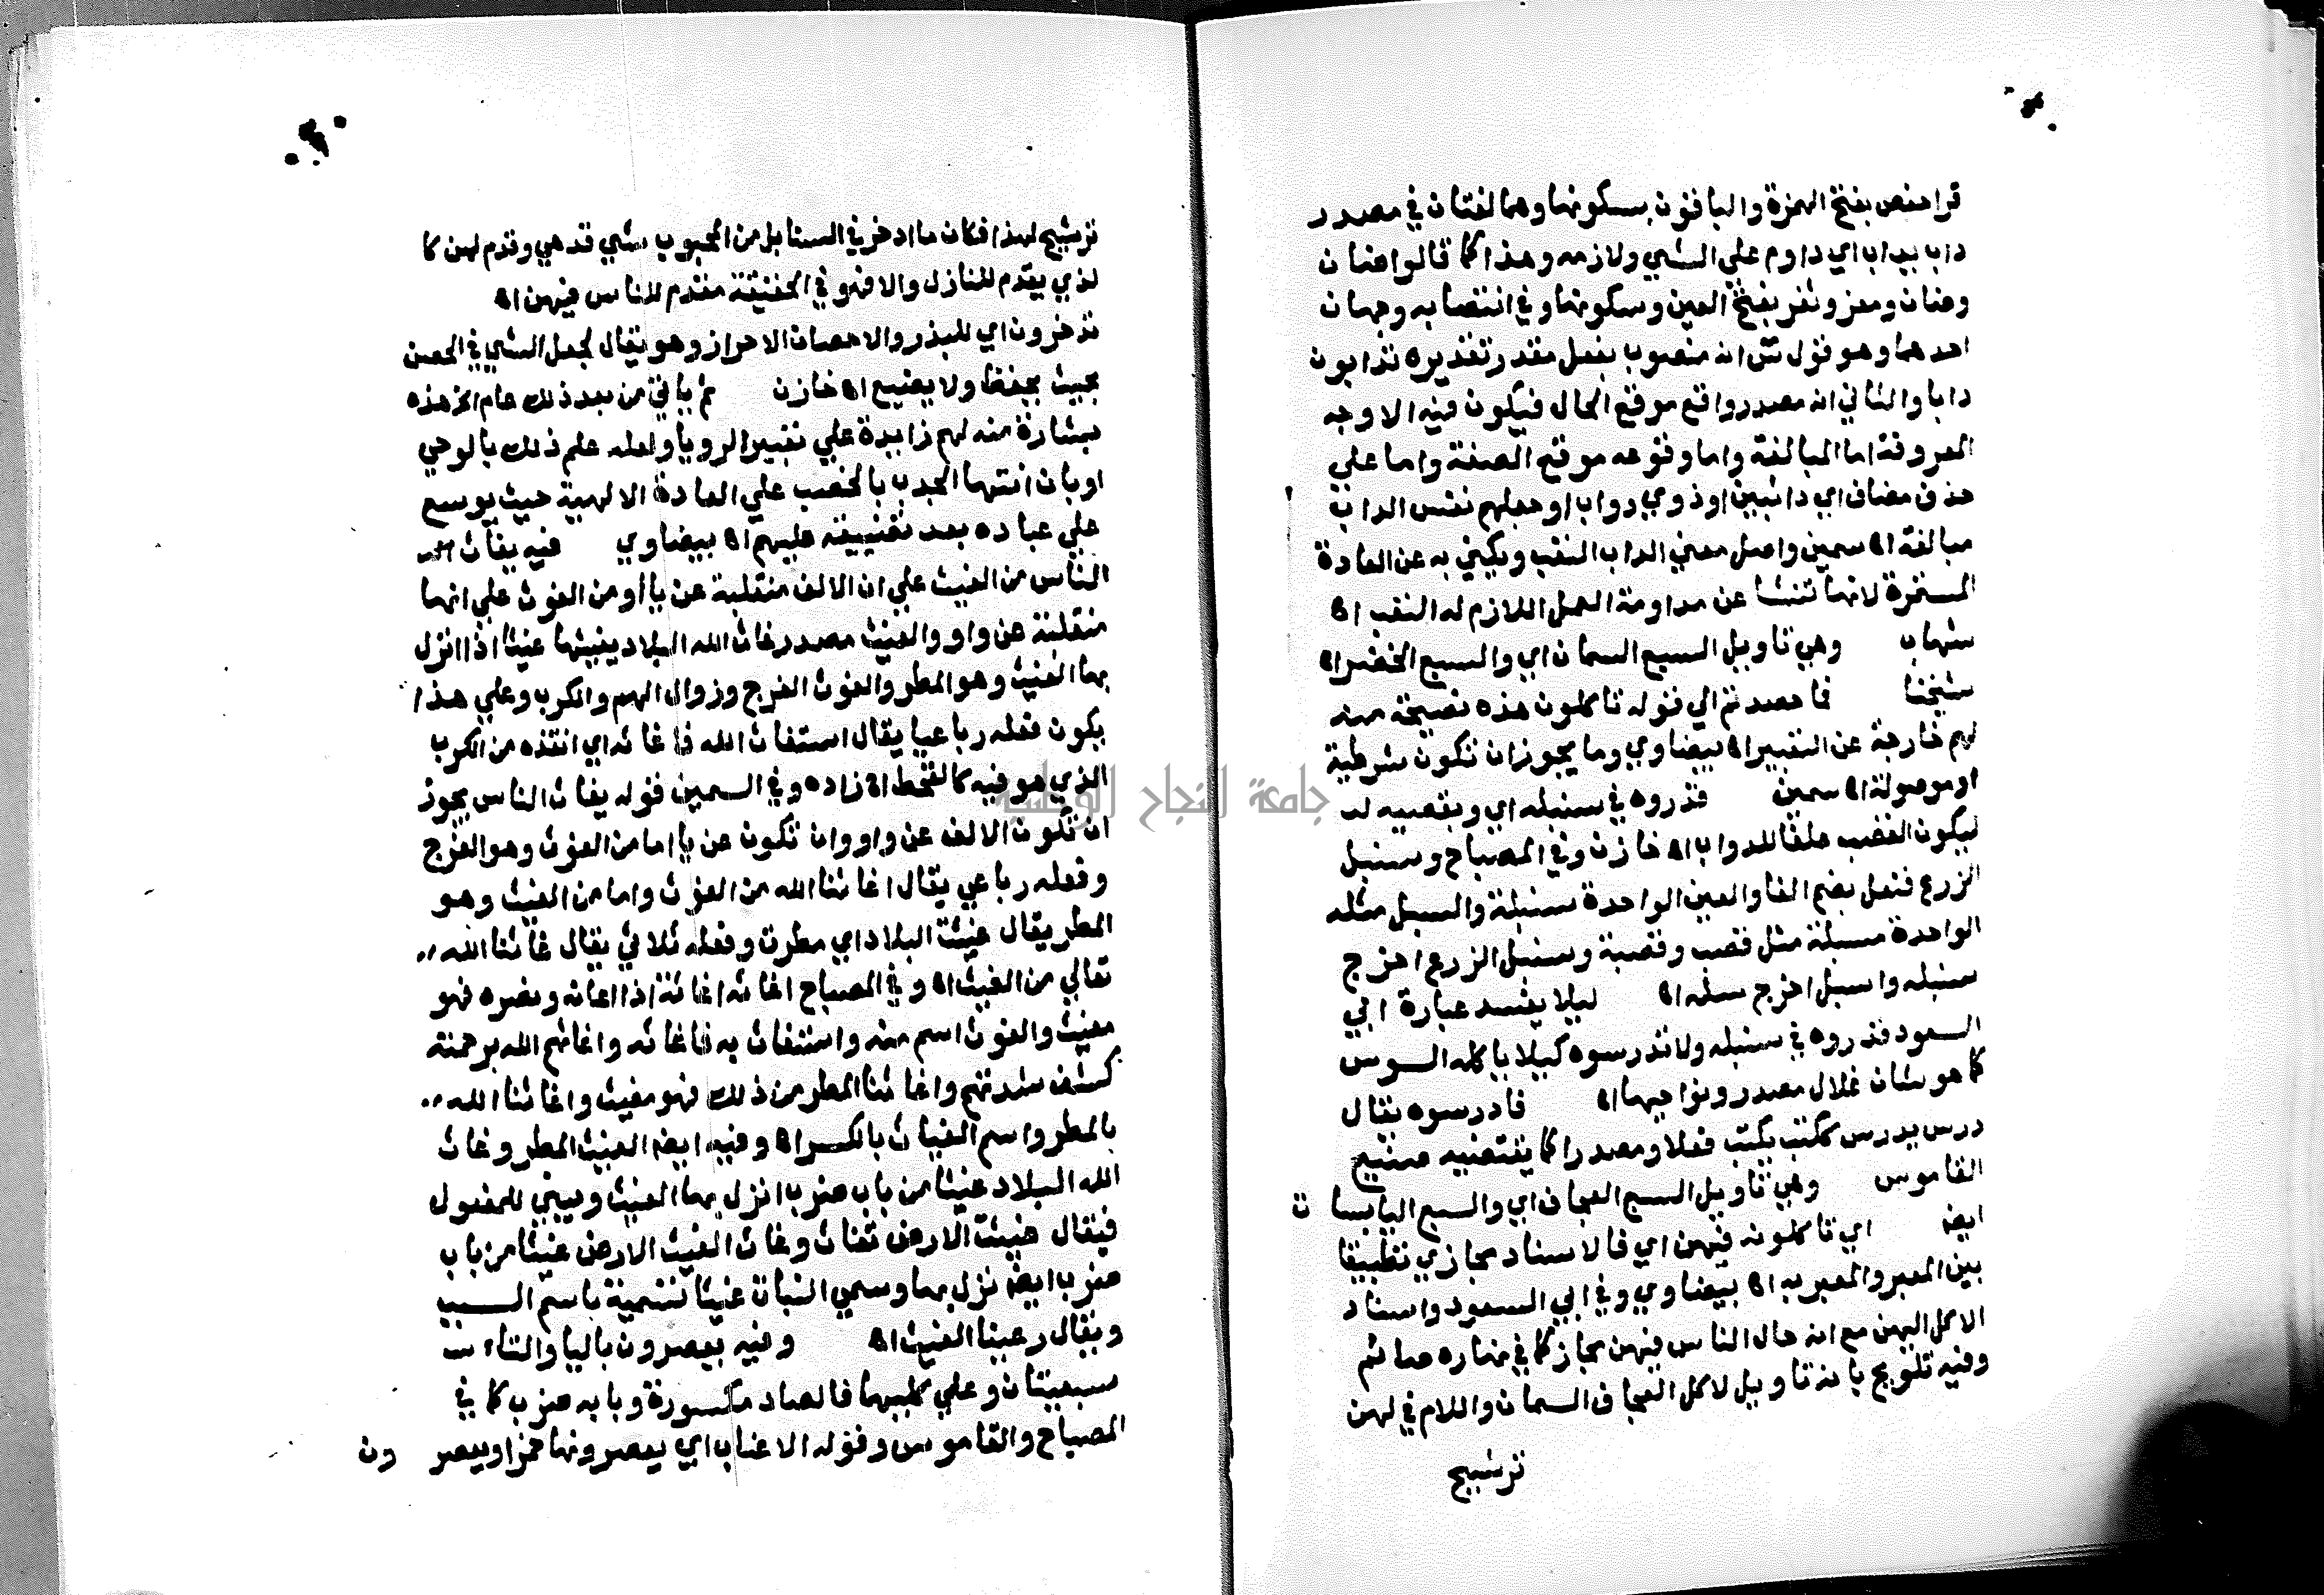 قرا حفص بفتح الهمزة والباقون بسكونها وهما لغتان في مصدر
داب يداب اي داوم علي الشي ولازمه وهذا كما قالوا ضان
وضان ومعز ومعز بفتح العين وسكونها وفي انتصابه وجهان
احدهما وهو قول س انه منصوب بفعل مقدر تقديره تدابون
دابا والثاني انه مصدر واقع موقع الحال فيكون فيه الاوجه
المعروفة اما المبالغة واما وقوعه موقع الصفة واما علي
حذف مضاف اي دائبين او ذوي دواب او جعلهم نفس الداب
مبالغة اه سمين واصل معني الداب التعب ويكني به عن العادة
المستمرة لانها تنشا عن مداومة العمل اللازم له التعب اه
شهاب وهي تاويل السبع السمان اي والسبع الخضر اه
شيخنا فما حصدتم الي قوله تاكلون هذه نصيحة منه
لهم خارجة عن التعبير اه بيضاوي وما يجوز ان تكون شرطية
او موصولة اه سمين فذروه في سنبله اي وبقصبه لـ
ليكون القصب علفا للدواب اه خازن وفي المصباح وسنبل
الزرع فنعل بضم الفا والعين الواحدة سنبلة والسبل مثله
الواحدة سبلة مثل قصب وقصبة وسنبل الزرع اخرج
سنبله واسبل اخرج سبله اه ليلا يفسد عبارة ابي
السعود فذروه في سنبله ولا تدرسوه كيلا ياكله السوس
كما هو شان غلال مصر ونواحيها اه فادرسوه يقال
درس يدرس ككتب يكتب فعلا ومصدرا كما يقتضيه صنيع
القاموس وهي تاويل السبع العجاف اي والسبع اليابسات
ايضا اي تاكلونه فيهن اي فالاسناد مجازي تطبيقا
بين المعبر والمعبر به اه بيضاوي وفي ابي السعود واسناد
الاكل اليهن مع انه حال الناس فيهن مجاز كما في نهاره صائم
وفيه تلويح بانه تاويل لاكل العجاف السمان واللام في لهن
ترشيح
٢٠
ترشيح لهذا فكان ما ادخر في السنابل من الحبوب شي قد هيي وقدم لهن كا
لذي يقدم للنازل والا فهو في الحقيقة مقدم للناس فيهن اه
تدخرون اي للبذر والاحصان الاحراز وهو يقال لجعل الشي في الحصن
بحيث يحفظ ولا يضيع اه خازن ثم ياتي من بعد ذلك عام الخ هذه
بشارة منه لهم زايدة علي تعبير الرويا ولعله علم ذلك بالوحي
او بان انتها الجدب بالخصب علي العادة الالهية حيث يوسع
علي عباده بعد تضييقه عليهم اه بيضاوي فيه يغاث
الناس من الغيث علي ان الالف منقلبة عن يا او من الغوث علي انها
منقلبة عن واو والغيث مصدر غاث الله البلاد يغيثها غيثا اذا انزل
بها الغيث وهو المطر والغوث الفرج وزوال الهم والكرب وعلي هذا
يكون فعله رباعيا يقال استغاث الله فاغاثه اي انقذه من الكرب
الذي هو فيه كالقحط اه زاده وفي السمين قوله يغاث الناس يجوز
ان تكون الالف عن واو وان تكون عن يا اما من الغوث وهو الفرج
وفعله رباعي يقال اغاثنا الله من الغوث واما من الغيث وهو
المطر يقال غيثت البلاد اي مطرت وفعله ثلاثي يقال غاثنا الله
تعالي من الغيث اه وفي المصباح اغاثه اغاثة اذا اعانه ونصره فهو
مغيث والغوث اسم منه واستغاث به فاغاثه واغاثهم الله برحمته
كشف شدتهم واغاثنا المطر من ذلك فهو مغيث واغاثنا الله
بالمطر واسم الغياث بالكسر اه وفيه ايضا الغيث المطر وغاث
الله البلاد غيثا من باب ضرب انزل بها الغيث ويبني للمفعول
فيقال غيثت الارض تغاث وغاث الغيث الارض غيثا من باب
ضرب ايضا نزل بها وسمي النبات غيثا تسمية باسم السبب
ويقال رعينا الغيث اه وفيه يعصرون باليا والتاء
سبعيتان وعلي كليهما فالصاد مكسورة وبابه ضرب كما في
المصباح والقاموس وقوله الاعناب اي يعصرونها خمرا ويعصر ون
جامعة النجاح الوطنية